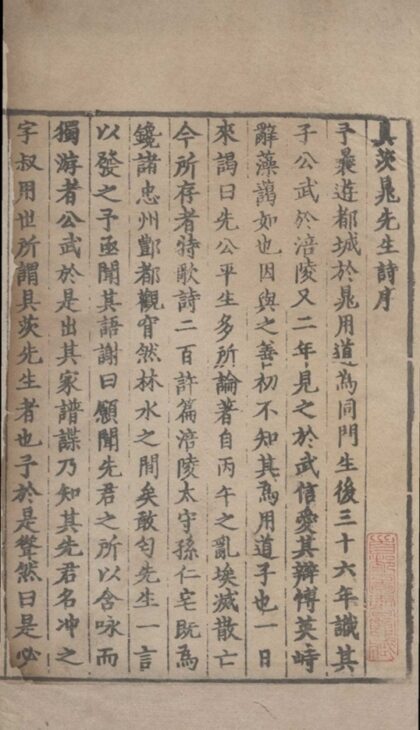 具茨晁先生詩序
予曩遊都城於晁用道為同門生後三十六年識其
子公武於涪陵又二年見之於武信愛其辯博英峙
辭藻藹如也因與之善初不知其為用道子也一日
來謁曰先公平生多所論著自丙午之亂埃滅散亡
今所存者特歌詩二百許篇涪陵太守孫仁宅既為
鑱諸忠州酆都觀窅然林水之間矣敢匄先生一言
以發之予亟聞其語謝曰願聞先君之所以含咏而
獨游者公武於是出其家譜諜乃知其先君名冲之
字叔用世所謂具茨先生者也予於是聳然曰是必